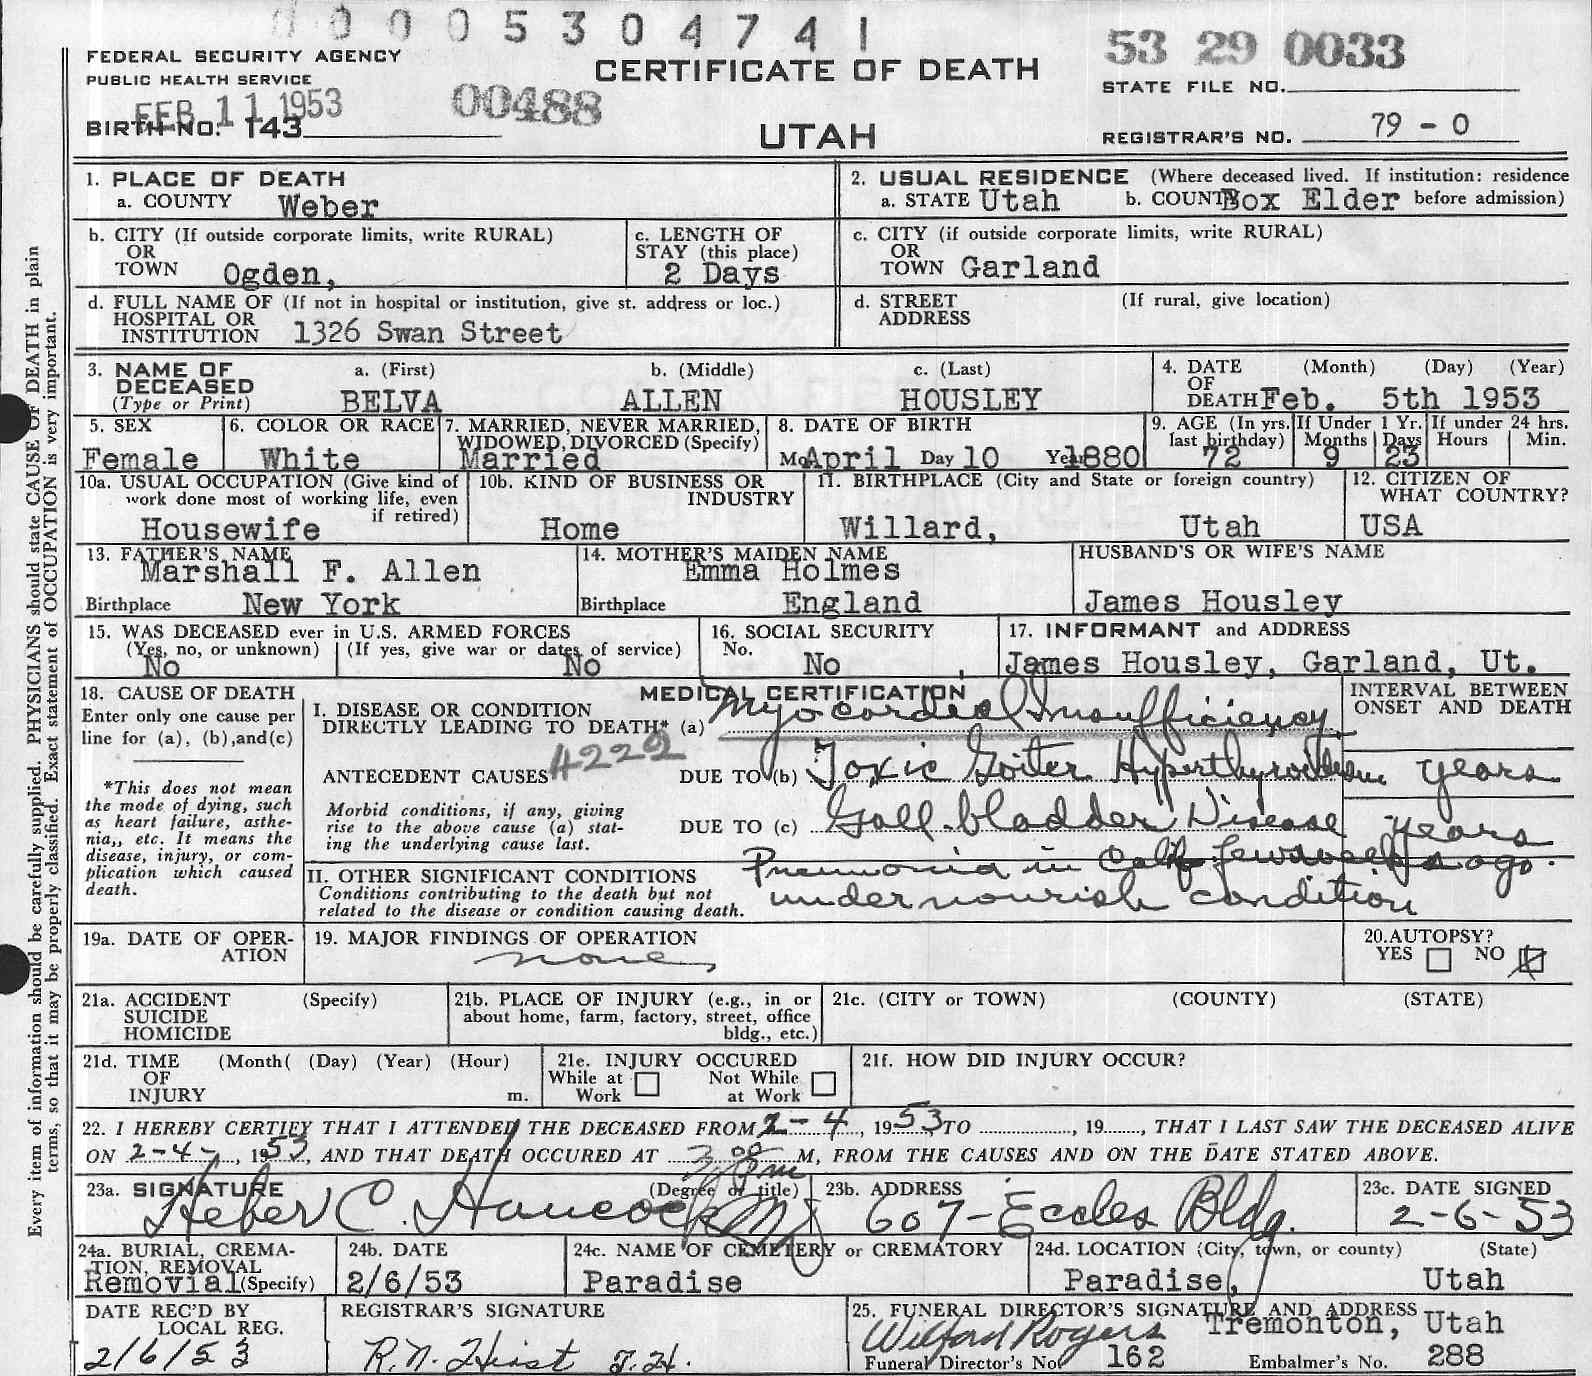 0005304741
FEDERAL SECURITY AGENCY
PUBLIC HEALTH SERVICE
CERTIFICATE OF DEATH
53 29 0033
STATE FILE NO.
FEB 11 1953
00488
BIRTH NO. 143
UTAH
REGISTRAR'S NO. 79 - 0
1. PLACE OF DEATH
a. COUNTY Weber
2. USUAL RESIDENCE (Where deceased lived. If institution: residence
a. STATE Utah b. COUNTY Box Elder before admission)
b. CITY (If outside corporate limits, write RURAL)
OR
TOWN Ogden,
c. LENGTH OF
STAY (this place)
2 Days
c. CITY (if outside corporate limits, write RURAL)
OR
TOWN Garland
d. FULL NAME OF (If not in hospital or institution, give st. address or loc.)
HOSPITAL OR
INSTITUTION 1326 Swan Street
d. STREET (If rural, give location)
ADDRESS
3. NAME OF DECEASED (Type or Print)
a. (First) b. (Middle) c. (Last)
BELVA ALLEN HOUSLEY
4. DATE OF DEATH (Month) (Day) (Year)
Feb. 5th 1953
5. SEX
Female
6. COLOR OR RACE
White
7. MARRIED, NEVER MARRIED,
WIDOWED, DIVORCED (Specify)
Married
8. DATE OF BIRTH
Mo. April Day 10 Year 1880
9. AGE (In yrs. last birthday)
72
If Under 1 Yr.
Months Days
9 23
If under 24 hrs.
Hours Min.
10a. USUAL OCCUPATION (Give kind of
work done most of working life, even
if retired)
Housewife
10b. KIND OF BUSINESS OR
INDUSTRY
Home
11. BIRTHPLACE (City and State or foreign country)
Willard, Utah
12. CITIZEN OF
WHAT COUNTRY?
USA
13. FATHER'S NAME
Marshall F. Allen
Birthplace New York
14. MOTHER'S MAIDEN NAME
Emma Holmes
Birthplace England
HUSBAND'S OR WIFE'S NAME
James Housley
15. WAS DECEASED ever in U.S. ARMED FORCES
(Yes, no, or unknown) (If yes, give war or dates of service)
No No
16. SOCIAL SECURITY
No.
No ,
17. INFORMANT and ADDRESS
James Housley, Garland, Ut.
18. CAUSE OF DEATH
Enter only one cause per
line for (a), (b),and(c)
*This does not mean
the mode of dying, such
as heart failure, asthe-
nia,, etc. It means the
disease, injury, or com-
plication which caused
death.
MEDICAL CERTIFICATION
I. DISEASE OR CONDITION
DIRECTLY LEADING TO DEATH* (a) Myocordial Insufficiency
4222
ANTECEDENT CAUSES
DUE TO (b) Toxic Goiter Hyperthyroidism years
Morbid conditions, if any, giving
rise to the above cause (a) stat-
ing the underlying cause last.
DUE TO (c) Gall bladder Disease years
INTERVAL BETWEEN
ONSET AND DEATH
II. OTHER SIGNIFICANT CONDITIONS
Conditions contributing to the death but not
related to the disease or condition causing death.
Pneumonia in Calif. few weeks ago.
undernourish condition
19a. DATE OF OPER-
ATION
19. MAJOR FINDINGS OF OPERATION
none
20. AUTOPSY?
YES NO
21a. ACCIDENT (Specify)
SUICIDE
HOMICIDE
21b. PLACE OF INJURY (e.g., in or
about home, farm, factory, street, office
bldg., etc.)
21c. (CITY or TOWN) (COUNTY) (STATE)
21d. TIME (Month( (Day) (Year) (Hour)
OF
INJURY m.
21e. INJURY OCCURED
While at Work Not While at Work
21f. HOW DID INJURY OCCUR?
22. I HEREBY CERTIFY THAT I ATTENDED THE DECEASED FROM 2-4, 1953, TO ............, 19......, THAT I LAST SAW THE DECEASED ALIVE
ON 2-4-, 1953, AND THAT DEATH OCCURED AT 3:00 P M, FROM THE CAUSES AND ON THE DATE STATED ABOVE.
23a. SIGNATURE (Degree or title)
Heber C. Hancock MD
23b. ADDRESS
607-Eccles Bldg.
23c. DATE SIGNED
2-6-53
24a. BURIAL, CREMA-
TION, REMOVAL
Removial (Specify)
24b. DATE
2/6/53
24c. NAME OF CEMETERY or CREMATORY
Paradise
24d. LOCATION (City, town, or county) (State)
Paradise, Utah
DATE REC'D BY
LOCAL REG.
2/6/53
REGISTRAR'S SIGNATURE
R.N. Hirst J.H.
25. FUNERAL DIRECTOR'S SIGNATURE AND ADDRESS
Wilford Rogers Tremonton, Utah
Funeral Director's No. 162 Embalmer's No. 288
Every item of information should be carefully supplied. PHYSICIANS should state CAUSE OF DEATH in plain
terms, so that it may be properly classified. Exact statement of OCCUPATION is very important.